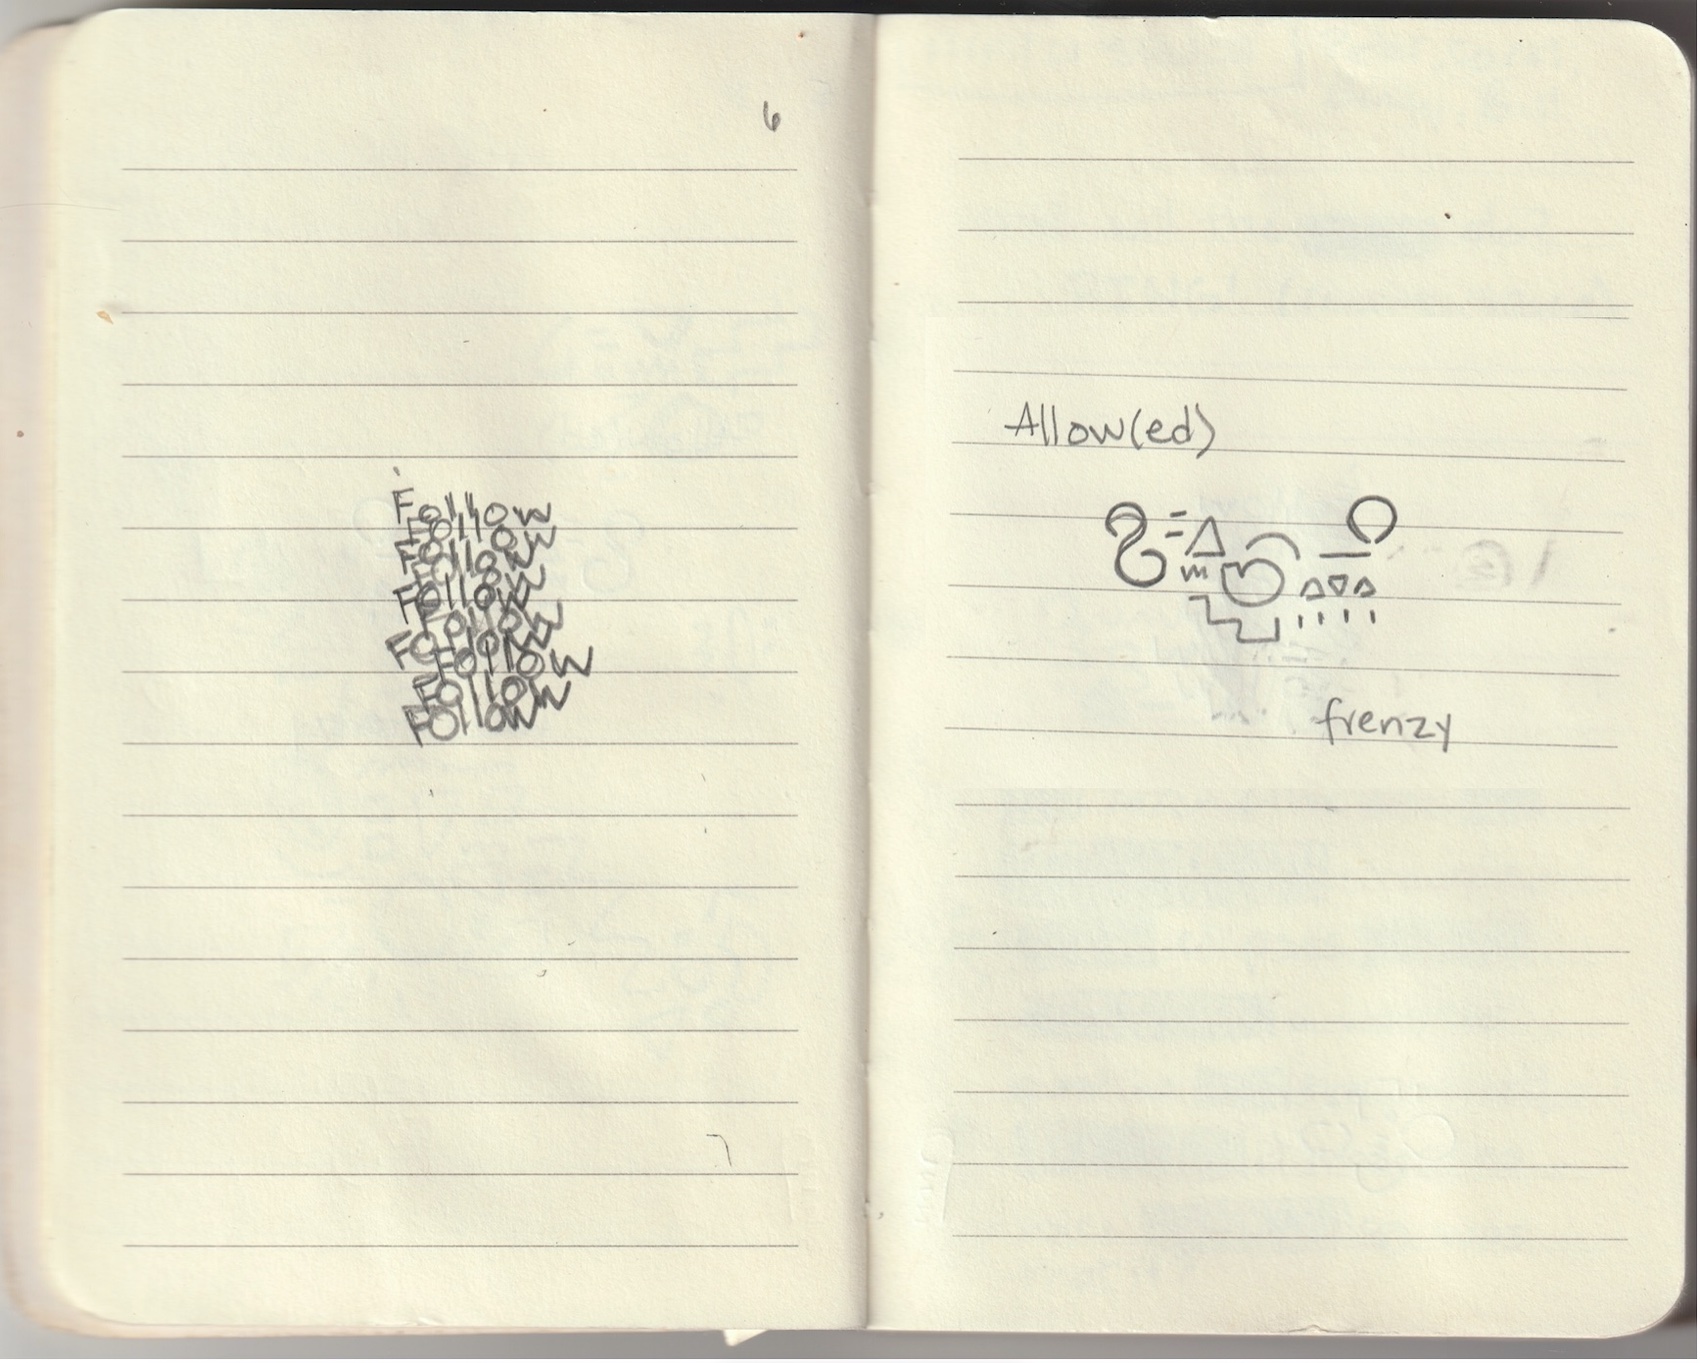 6
Follow
Follow
Follow
Follow
Follow
Follow
Follow
Follow
Follow
Follow
Allow(ed)
frenzy